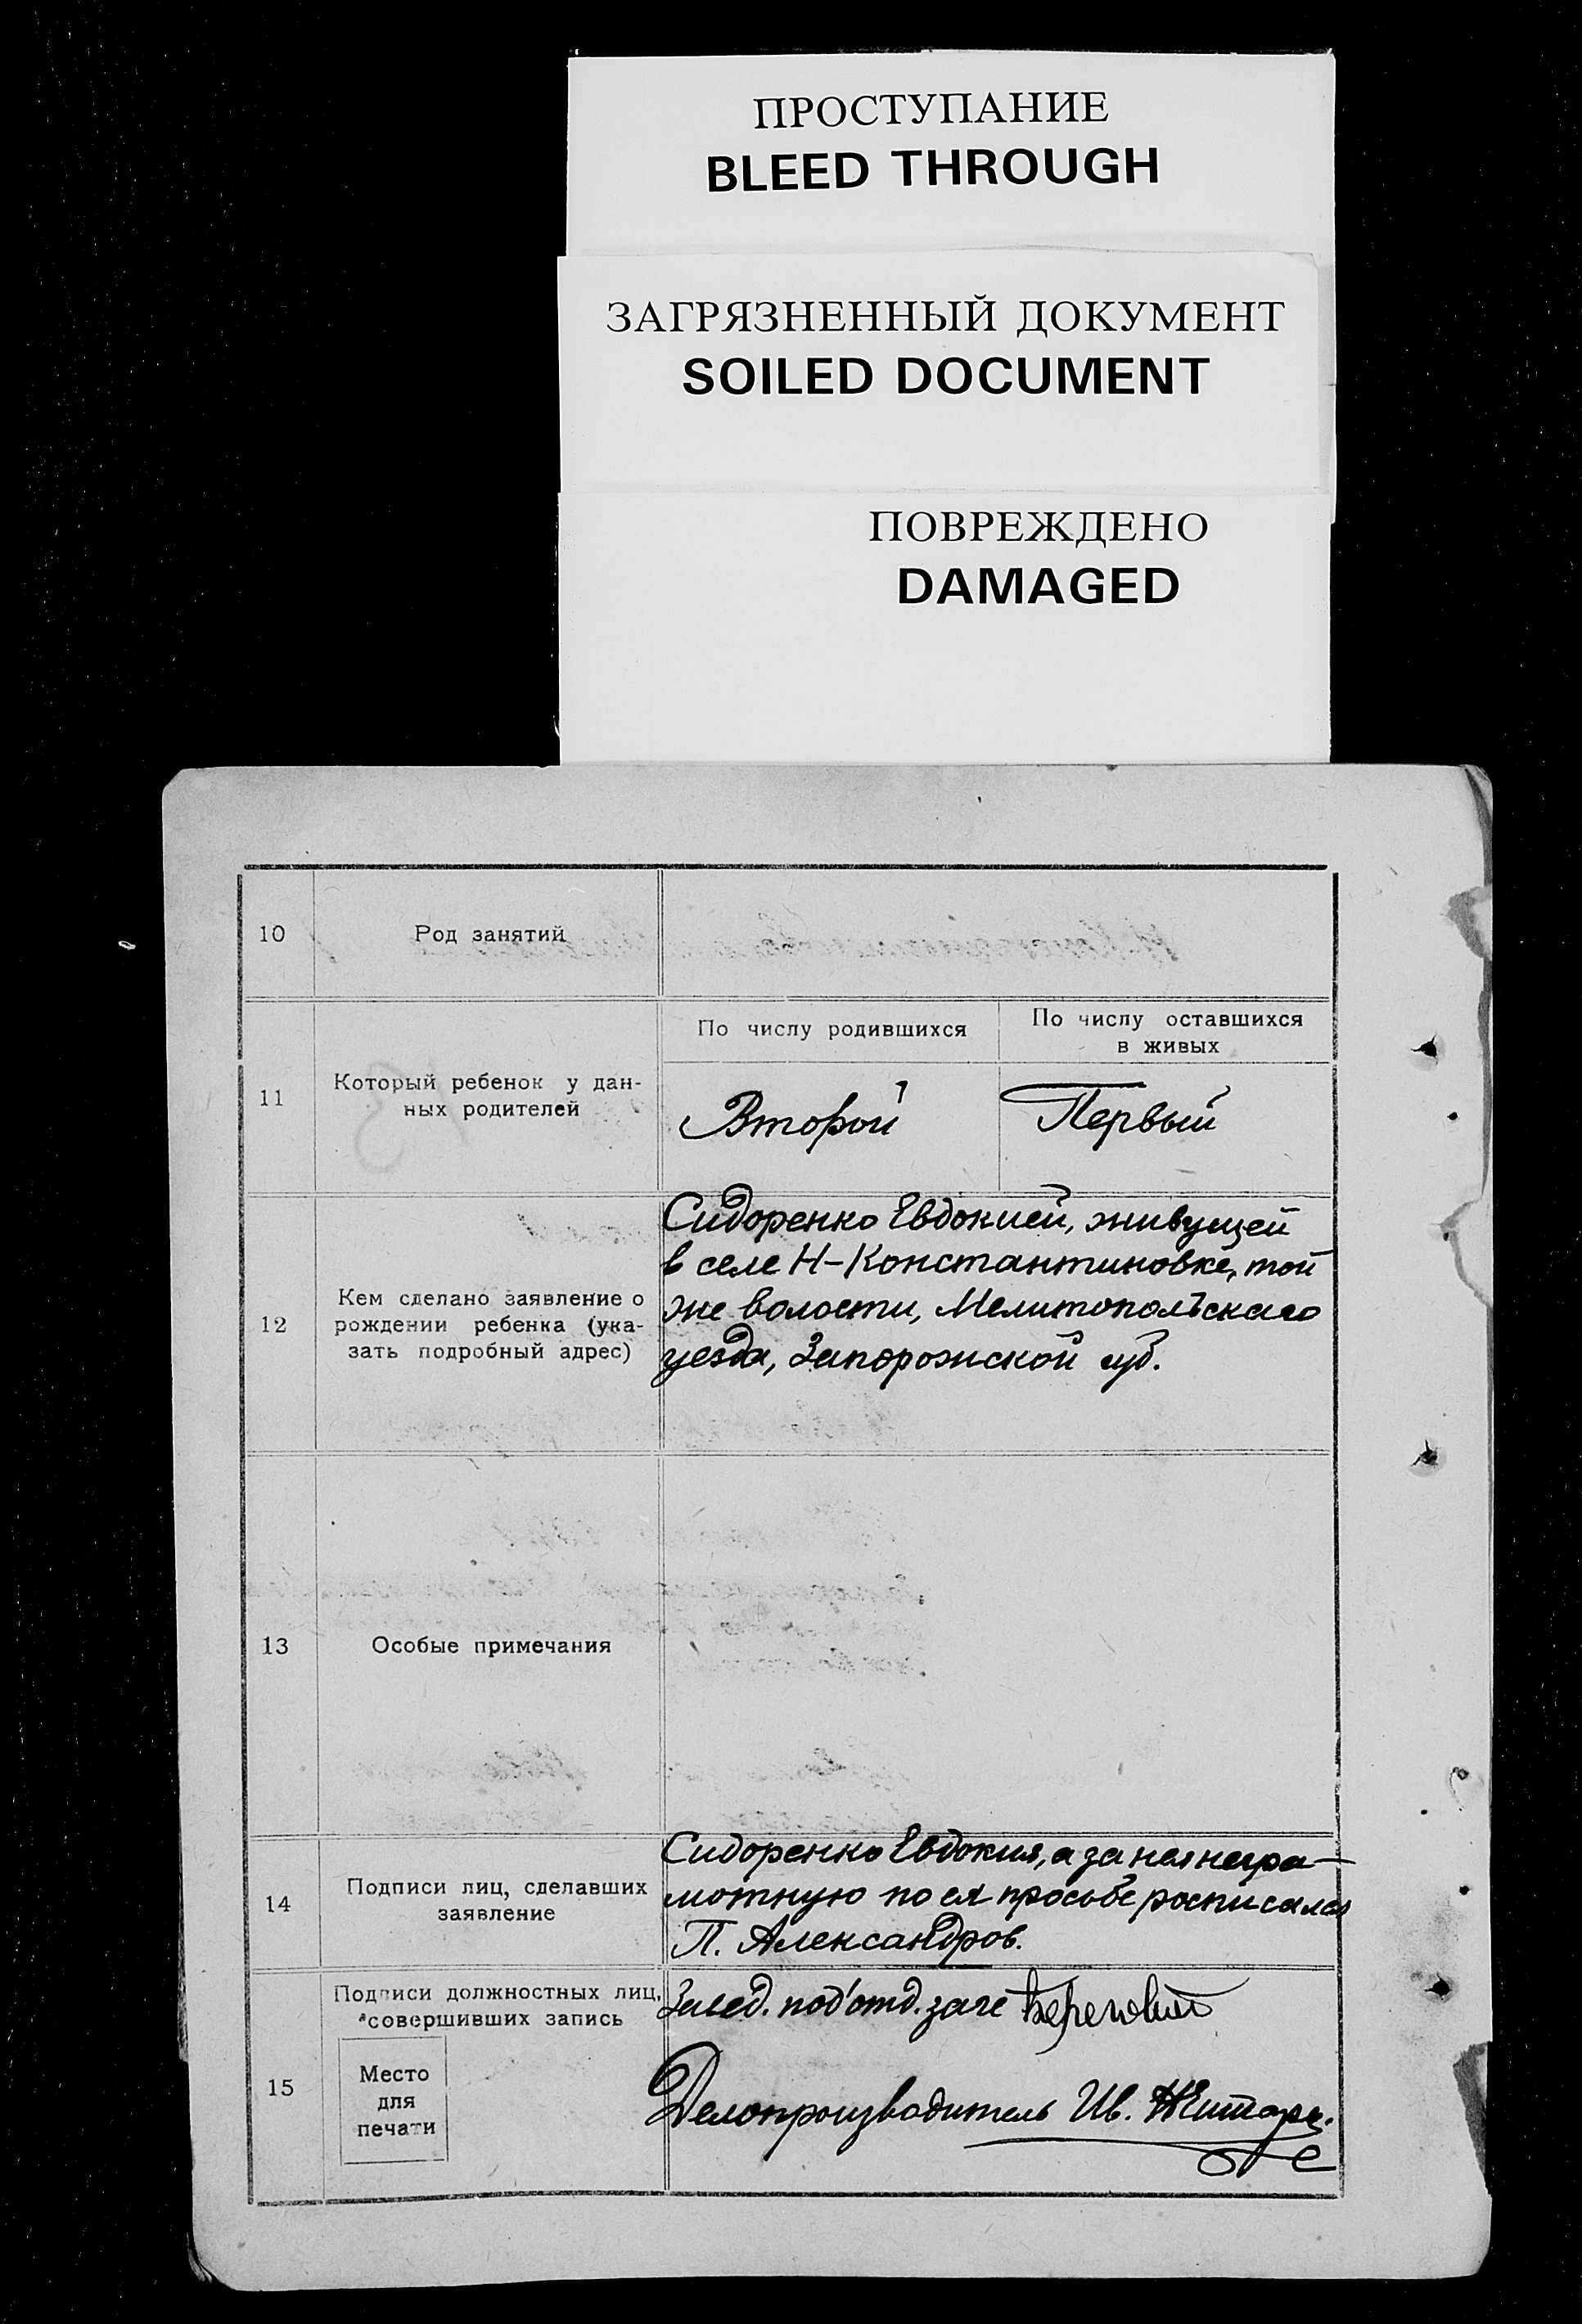 ПРОСТУПАНИЕ
BLEED THROUGH
ЗАГРЯЗНЕННЫЙ ДОКУМЕНТ
SOILED DOCUMENT
ПОВРЕЖДЕНО
DAMAGED
10
Род занятий
11
Который ребенок у дан-
ных родителей
По числу родившихся
По числу оставшихся
в живых
Второй
Первый
12
Кем сделано заявление о
рождении ребенка (ука-
зать подробный адрес)
Сидоренко Евдокией, живущей
в селе Н-Константиновке, той
же волости, Мелитопольскаго
уезда, Запорожской губ.
13
Особые примечания
14
Подписи лиц, сделавших
заявление
Сидоренко Евдокия, а за нея негра-
мотную по ея просьбе росписался
П. Александров.
15
Подписи должностных лиц,
совершивших запись
Место
для
печати
Завед. под'отд. загс
Делопроизводитель Ив.